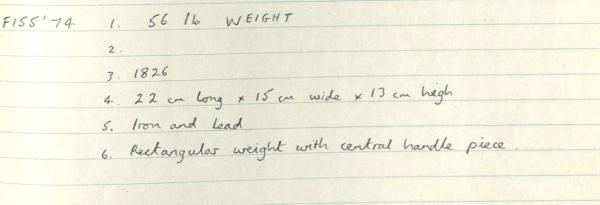 F155'74 1. 56 lb WEIGHT
2.
3. 1826
4. 22 cm long x 15 cm wide x 13 cm high
5. Iron and Lead
6. Rectangular weight with central handle piece.